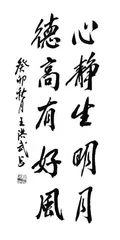 心静生明月
德高有好風
癸卯秋月王洪武书